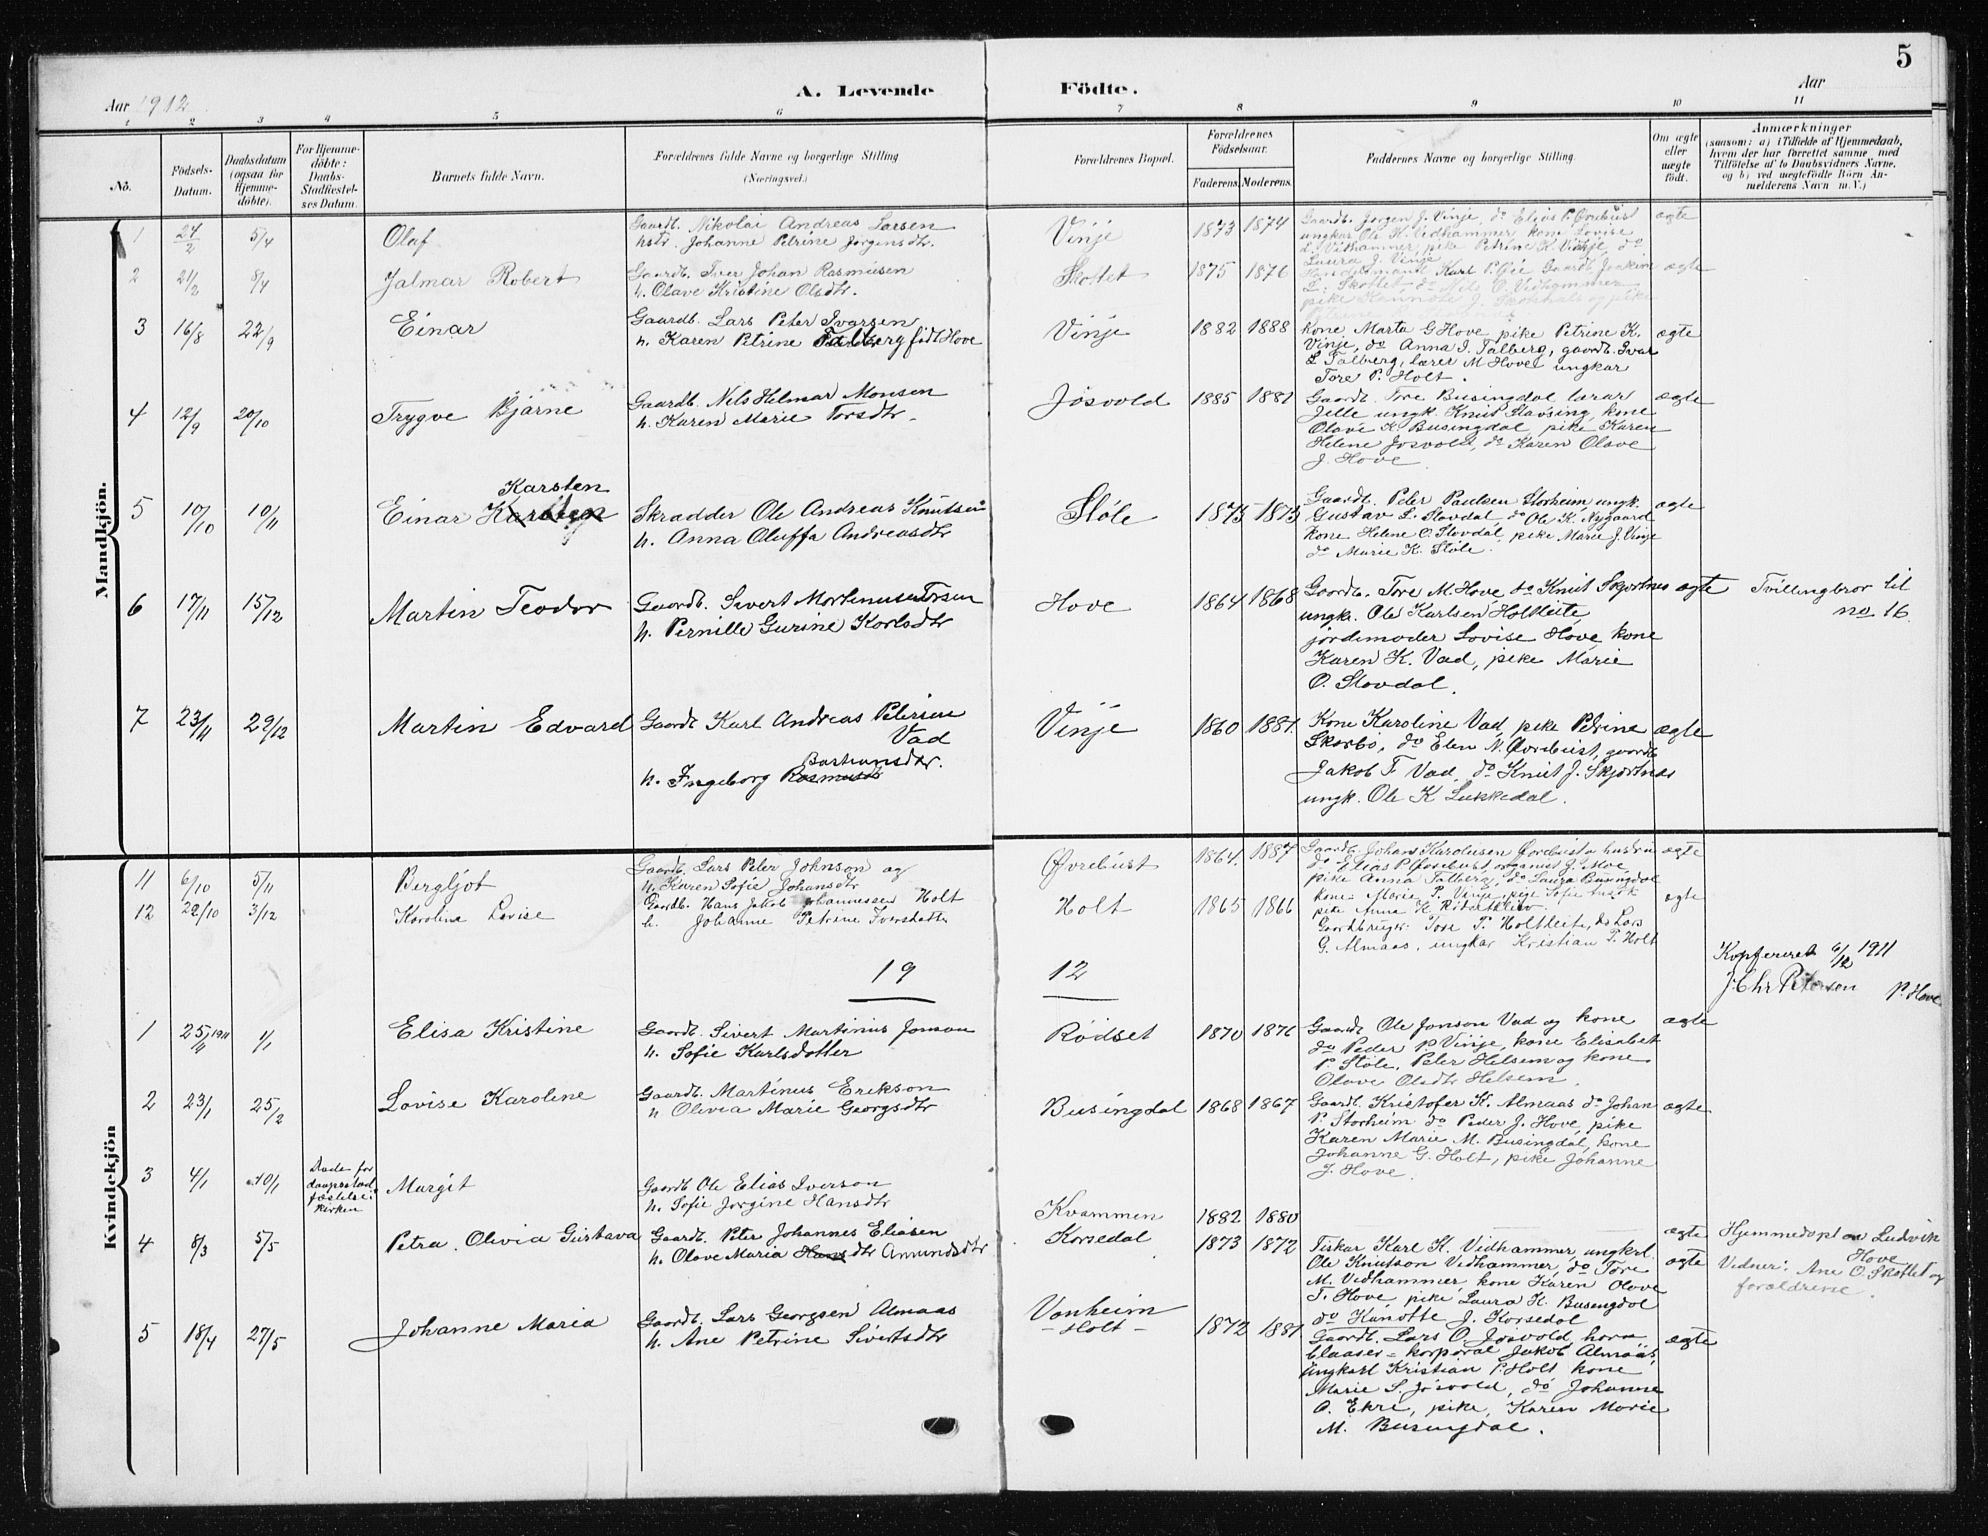 5
Aar 1912
A. Levende
Födte.
Aar
1 2 3 4 5 6 7 8 9 10 11
No.
Födsels-
Datum.
Daabsdatum
(ogsaa for
Hjemme-
döbte).
For Hjemme-
döbte:
Daabs-
Stadfæstel-
ses Datum.
Barnets fulde Navn.
Forældrenes fulde Navne og borgerlige Stilling
(Næringsvei.)
Forældrenes Bopæl.
Forældrenes
Födselsaar.
Faderens. Moderens.
Faddernes Navne og borgerlige Stilling.
Om ægte
eller
uægte
født.
Anmærkninger
(saasom: a) i Tilfælde af Hjemmedaab,
hvem der har forrettet samme med
Tilföielse af to Daabsvidners Navne.
og b) ved uægtefödte Börn An-
melderens Navn m. V.)
Mandkjön.
1 24/2 5/4 Olaf
Gaardb. Nikolai Andreas Larsen
hstr. Johanne Petrine Jørgensdtr.
Vinje 1873 1874
Gaardb. Jørgen J. Vinje, do Elias P. Øvrebust
ungkar Ole K. Vidhammer, kone Lovise
L. Vidhammer, pike Petrine K. Vinje, do
Laura J. Vinje
ægte
2 21/2 8/4 Jalmar Robert
Gaardb. Iver Johan Rasmusen
h. Olave Kristine Olsdtr.
Skottet 1875 1876
Handelsmand Karl P. Gaardb. Joakim
L. Skottet do Nils O. Vidhammer
pike
ægte
3 16/8 22/9 Einar
Gaardb. Lars Peter Ivarsen
h. Karen Petrine Talberg født Hove
Vinje 1882 1888
Kone Marta G Hove, pike Petrine K.
Vinje, do Anna I. Talberg, gaardb. Ivar
L Talberg, lærer M Hove ungkar
Tore P. Holt.
ægte
4 12/9 20/10 Trygve Bjarne
Gaardb. Nils Helmar Monsen
h. Karen Marie Torsdtr
Jøsvold 1885 1881
Gaardb. Tore Busingdal lærar
Jelle ungk. Knut Slavsing, kone
Olave K. Busingdal, pike Karen
Helene Jøsvold, do Karen Olave
J. Hove
ægte
5 10/10 10/11 Einar Karsten
Skrædder Ole Andreas Knutsen
h. Anna Oluffa Andreasdtr
Støle 1875 1873
Gaardb. Peter Paulsen Storheim ungk.
Gustav L. Slovdal, do Ole K. Nygaard
Kone Helene O. Slovdal, pike Marie J. Vinje
do Marie K. Støle.
ægte
6 17/11 15/12 Martin Teodor
Gaardb. Sivert Martinusen Torsen
h. Pernille Gurine Karlsdtr
Hove 1864 1868
Gaardb. Tore M. Hove do Knut Skjortnes
ungk. Ole Karlsen Holtleite
jordemoder Lovise Hove kone
Karen K. Vad, pike Marie
O. Slovdal.
ægte
Tvillingbror til
no 16.
7 23/11 29/12 Martin Edvard
Gaardb Karl Andreas Petersen
Vad
Bastiansdtr.
h. Ingeborg Rasmusdtr
Vinje 1860 1881.
Kone Karoline Vad, pike Petrine
Skorbø, do Elen N. Øvrebust, gaardb
Jakob T. Vad, do Knut J. Skjortnes
ungk. Ole K Lukkedal.
ægte
11 6/10 5/11 Bergljot
Gaardb. Lars Peter Johnson og
h. Karen Sofie Johansdtr
Øvrebust 1864. 1887
Gaardb. Johans Karolusen Øvrebust hustru
do Elias P. Øvrebust, organist J. Moe
pike Anna Talberg, do Laura Busingdal
ægte
12 29/10 3/12 Karolina Lovise
Gaardb. Hans Jakob Johannessen Holt
h. Johanne Petrine Iversdatter
Holt 1865 1866
kone Marie P. Vinje, pige Sofie
pike Anna K.
Gaardbruger Tore T. Holtleite, do Lars
G. Almaas, ungkar Kristian P. Holt
ægte
19
12
Kopferet 6/12 1911
J. Chr Petersen P. Hove
Kvindekjön
1 25/11 1911 1/1 Elisa Kristine
Gaardb. Sivert Martinius Jonson
h. Sofie Karlsdotter
Rødset 1870 1876
Gaardb Ole Jonson Vad og kone
do Peder P. Vinje, kone Elisabet
P. Støle, Peter Helsem og kone
Olave Olsdtr Helsem.
ægte
2 23/1 25/2 Lovise Karoline
Gaardb. Martinus Erikson
h Olivia Marie Georgsdtr
Busingdal 1868 1867
Gaardb. Kristofer K. Almaas do Johan
P. Storheim do Peder J. Hove, pike
Karen Marie M. Busingdal, kone
Johanne G. Holt, pike Johanne
J. Hove.
ægte
3 4/1 10/1
Døde før
daapsstad
fæstelse i
kirken
Margit
Gaardb Ole Elias Iverson
h. Sofie Jørgine Hansdtr
Kvammen 1882 1880
ægte
Hjemmedøpt av Ludvik
Hove
Vidner: Ane O. Skottet og
forældrene.
4 8/3 5/5 Petra Olivia Gustava
Gaardb. Peter Johannes Eliasen
h. Olave Maria Hansdtr Amundsdtr
Korsedal 1873 1872
Fisker Karl K. Vidhammer, ungkrl.
Ole Knutson Vidhammer, do Tore
M. Vidhammer, kone Karen Olave
T. Hove, pike Laura K. Busengdal
do Hanotte J. Korsedal
ægte
5 18/4 27/5 Johanne Maria
Gaardb. Lars Georgsen Almaas
h. Ane Petrine Sivertsdtr
Vonheim
- Holt - 1872 1881
Gaardb. Lars O. Jøsvold, horn
blaaser - korporal Jakob Almaas,
ungkarl Kristian P. Holt, kone
Marie S. Jøsvold, do Johanne
O. Ekre, pike, Karen Marie
M. Busengdal.
ægte